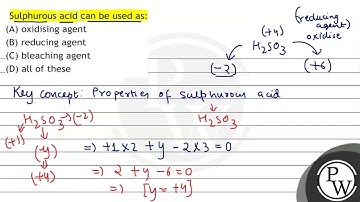 Sulphurous acid can be used as:
(A) oxidising agent
(B) reducing agent
(C) bleaching agent
(D) all of these
(reducing agent)
(+4) oxidise
H₂SO₃
(-2) (+6)
Key concept: Properties of sulphurous acid
H₂SO₃
H₂SO₃→(-2)
(+1) (y) ⇒ +1×2 + y - 2×3 = 0
(+4) ⇒ 2 + y - 6 = 0
⇒ [y = +4]
PW